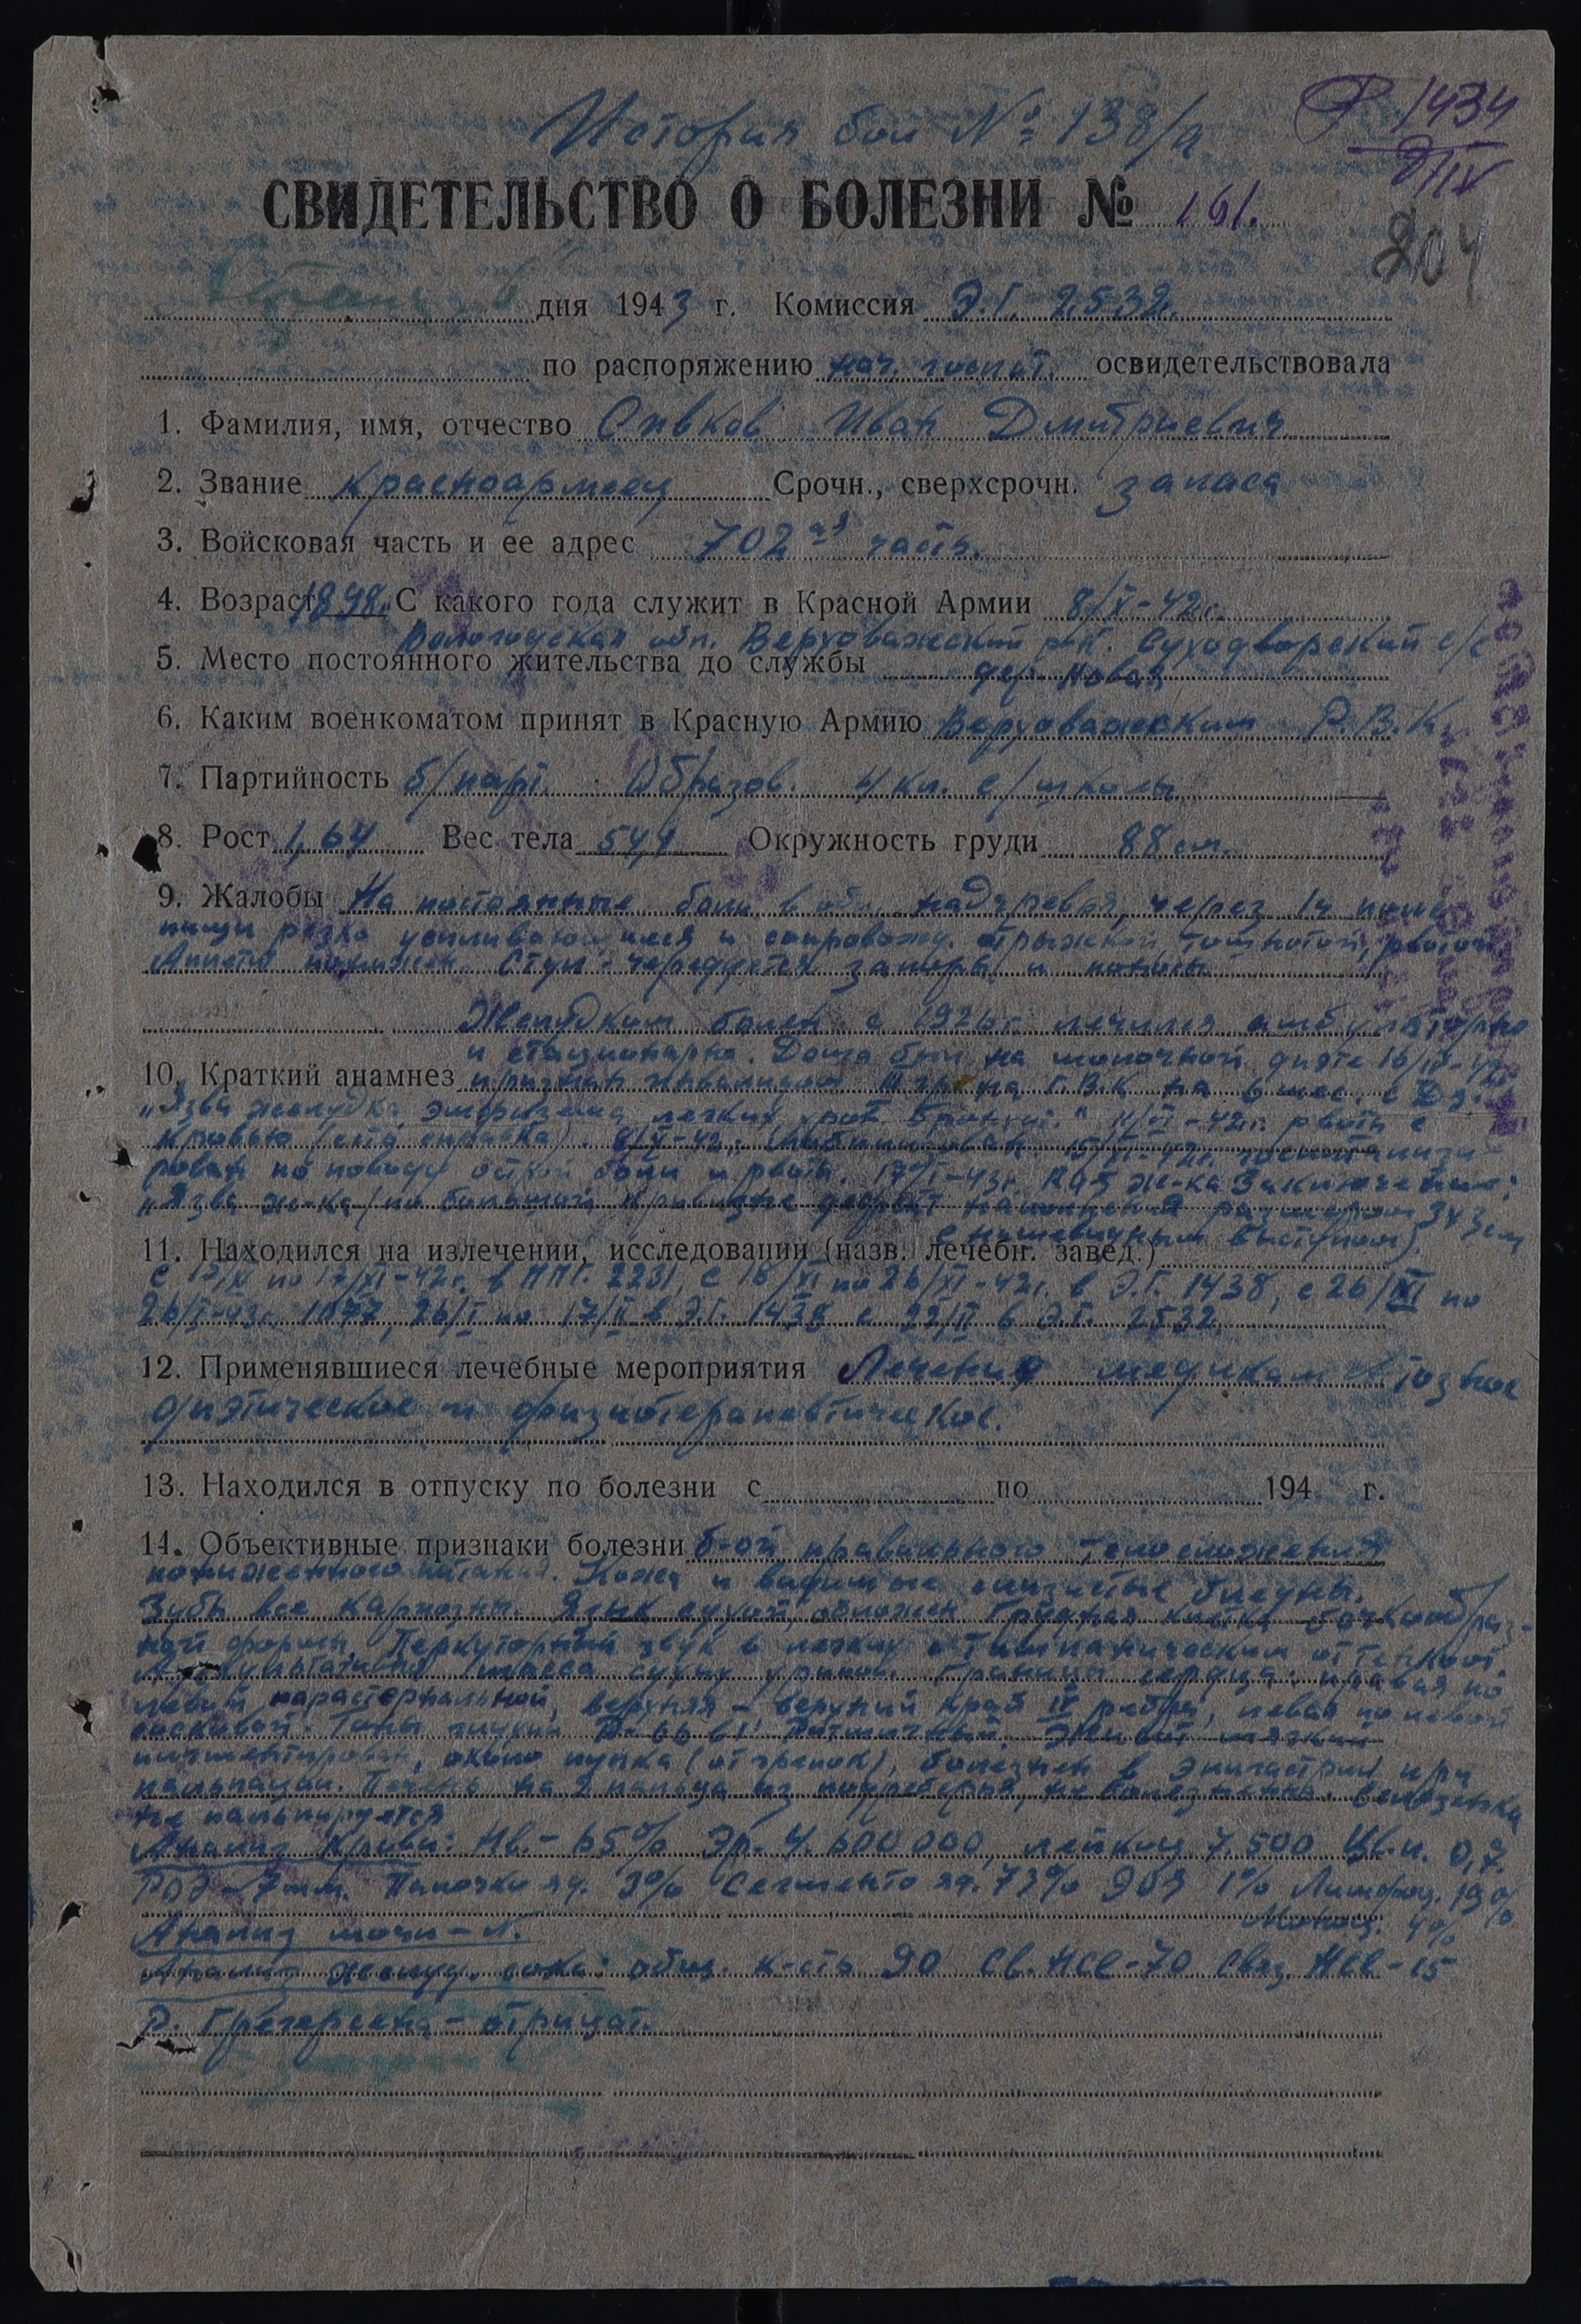 История бол № 138/а
Р 1434
СВИДЕТЕЛЬСТВО О БОЛЕЗНИ № 161.
204
дня 1943 г. Комиссия Э.Г. 2532.
по распоряжению нач. госпит. освидетельствовала
1. Фамилия, имя, отчество Сивков Иван Дмитриевич
2. Звание красноармеец Срочн., сверхсрочн. запаса
3. Войсковая часть и ее адрес 702ая часть.
4. Возраст 1898. С какого года служит в Красной Армии 8/X-42г.
Вологодская обл. Верховажский р-н. Суходворский с/с
5. Место постоянного жительства до службы дер. Новая
6. Каким военкоматом принят в Красную Армию Верховажским Р.В.К.
7. Партийность б/парт. Образов. 4 кл. с/школы
8. Рост 1,64 Вес тела 54,4 Окружность груди 88 см.
9. Жалобы На постоянные боли в обл. надчревья, через 1ч после
пищи резко усиливающиеся и сопровожд. отрыжкой, тошнотой, рвотой
Аппетит понижен. Стул - чередуется запоры и поносы
Желудком болен с 1926г. лечился амбулаторно
и стационарно. Дома был на молочной диэте 16/IV-42
10. Краткий анамнез признан инвалидом III гр. на Г.В.К. на 6 мес. с Дз:
„Язва желудка, эмфизема легких, хрон. бронхит." рвота с
кровью 8/X-42г. мобилизован госпитализи-
рован по поводу острой боли и рвоты. 17/I-43г. R-гр ж-ка Заключение:
„Язва ж-ка (по большой кривизне дефект наполнения размером 3х3 см
с нишевидным выступом).
11. Находился на излечении, исследовании (назв. лечебн. завед.)
по 17/XI-42г. в ППГ. 2231, с 18/XI по 26/XI-42г. в Э.Г. 1438, с 26/XI по
26/I-43г. 1077, 26/I по 17/II в Э.Г. 1438 с 22/II в Э.Г. 2532.
12. Применявшиеся лечебные мероприятия Лечение медикаментозное
диэтическое и физиотерапевтическое.
13. Находился в отпуску по болезни с по 194 г.
14. Объективные признаки болезни б-ой правильного телосложения
пониженного питания. Кожа и видимые слизистые бледны.
Зубы все кариозны. Язык сухой, обложен. Грудная клетка бочкообраз-
ной формы. Перкуторный звук в легких с тимпаническим оттенком.
Аускультативно масса сухих хрипов. Границы сердца: правая по
левой парастернальной, верхняя - верхний край IV ребра, левая по левой
сосковой. Тоны глухие Ритмичный. Живот мягкий
пигментирован, около пупка (от грелок), болезнен в эпигастрии при
пальпации. Печень на 2 пальца из подреберья, не болезненна. Селезенка
не пальпируется
Анализ крови: Нв. - 65% Эр. 4.600 000, лейкоц 7.500 Цв.п. 0,7.
РОЭ - 7мм. Палочки яд. 3% Сегменто яд. 73% Эоз 1% Лимфоц. 19%
Моноц. 4%
Анализ мочи - N.
Анализ желуд. сока: общ. к-сть 90 Св. HCl - 70 Связ. HCl - 15
Р. Грегерсена - отрицат.